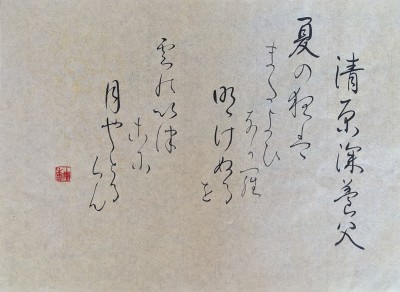 清原深養父
夏の夜は
まだよひ
な可羅
明けぬるを
雲能以津
こに
月やとる
らん